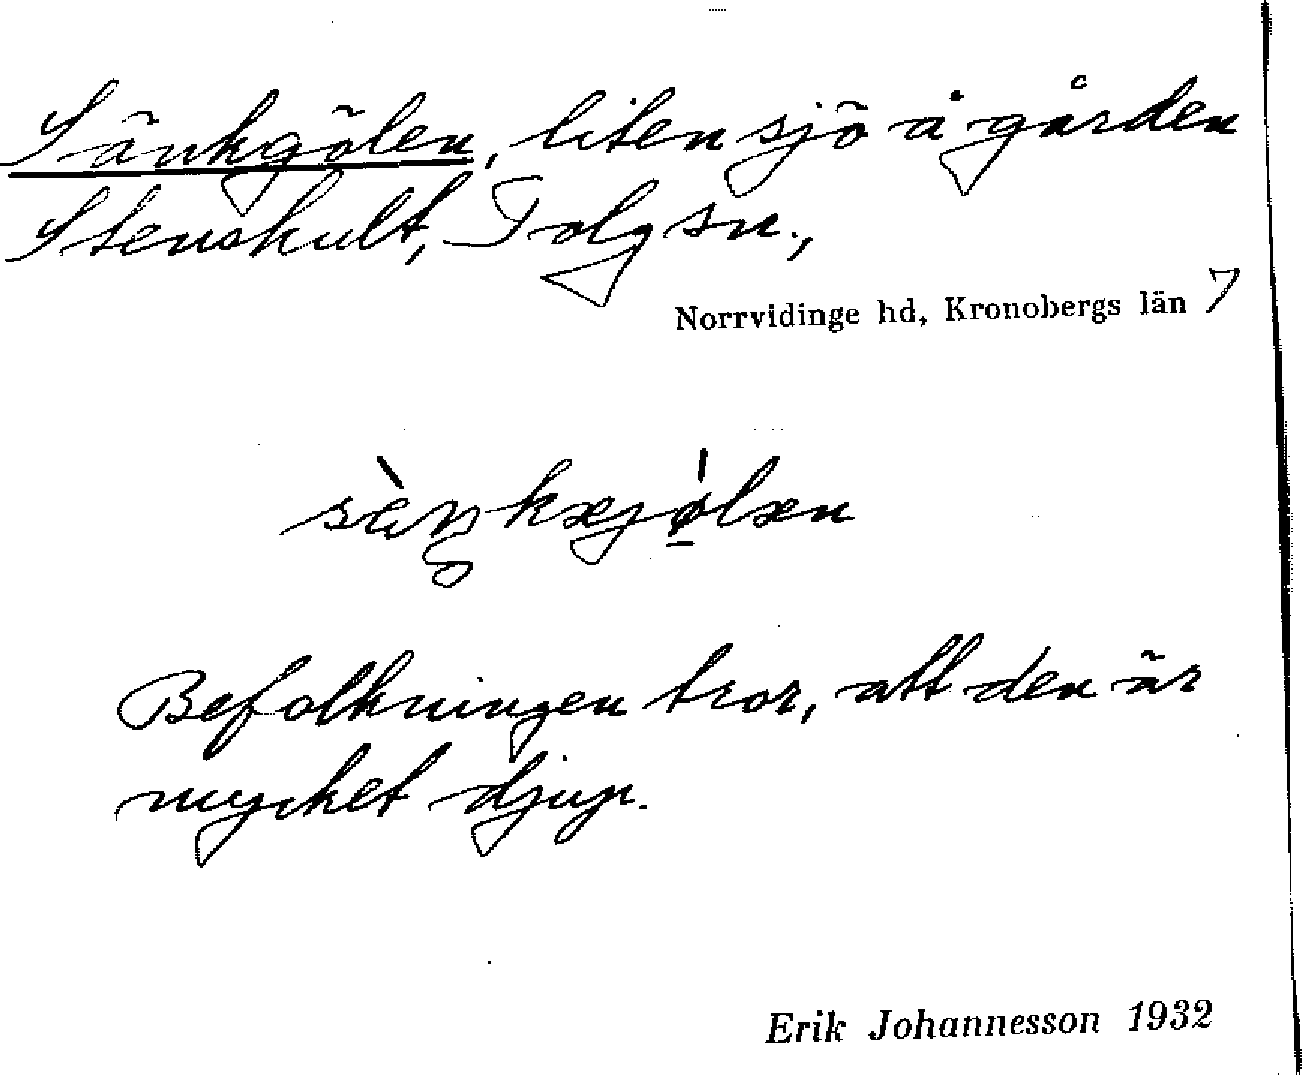 Sänkgölen, liten sjö å gården
Stenskult, Tolg sn.,
Norrvidinge hd, Kronobergs län 7
sàŋkæjǿ̲læn
Befolkningen tror, att den är
mycket djup.
Erik Johannesson 1932